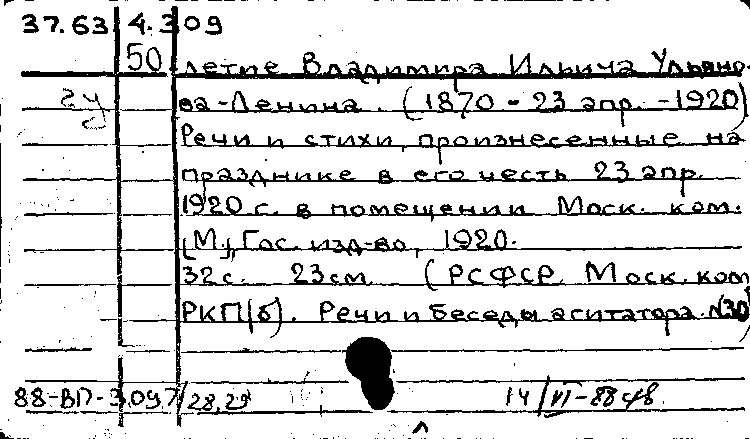 37.63 4.309
50 летие Владимира Ильича Ульяно-
ва-Ленина. (1870 - 23 апр. - 1920)
Речи и стихи, произнесенные на
празднике в его честь 23 апр.
1920 г. в помещении Моск. ком.
[М.], Гос. изд-во, 1920.
32 с. 23 см (РСФСР. Моск. ком
РКП(б). Речи и беседы агитатора. №30)
88-ВП-3.097/28,29